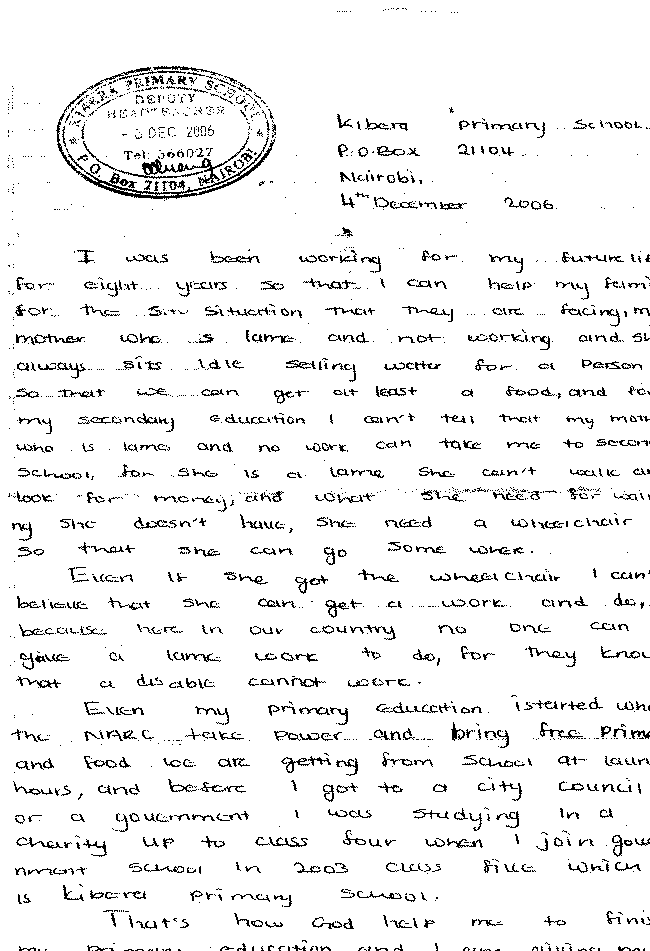 KIBERA PRIMARY SCHOOL
DEPUTY
HEADTEACHER
DEC 2006
Tel: 566027
P. O. Box 21104, NAIROBI
Kibera Primary School.
P.O.Box 21104
Nairobi,
4th December 2006
I was been working for my future
for eight years so that I can help my
for the Sitn Situation that they are facing,
mother who is lame and not working and
always sits idle selling water for a Person
so that we can get at least a food, and
my secondary education I can't tell that my
who is lame and no work can take me to
School, for she is a lame she can't walk
look for money, and what she need for
ng she doesn't have, she need a wheelchair
so that she can go some wher.
Even if she got the wheelchair I
believe that she can get a work and do,
because here in our country no one can
give a lame work to do, for they
that a disable cannot work.
Even my primary education istarted
the NARC take power and bring free
and food we are getting from school at
hours, and before I got to a city council
or a government I was studying in a
charity up to class four when I join
nment school in 2003 class five which
is Kibera primary School.
That's how God help me to
my primary education and I am